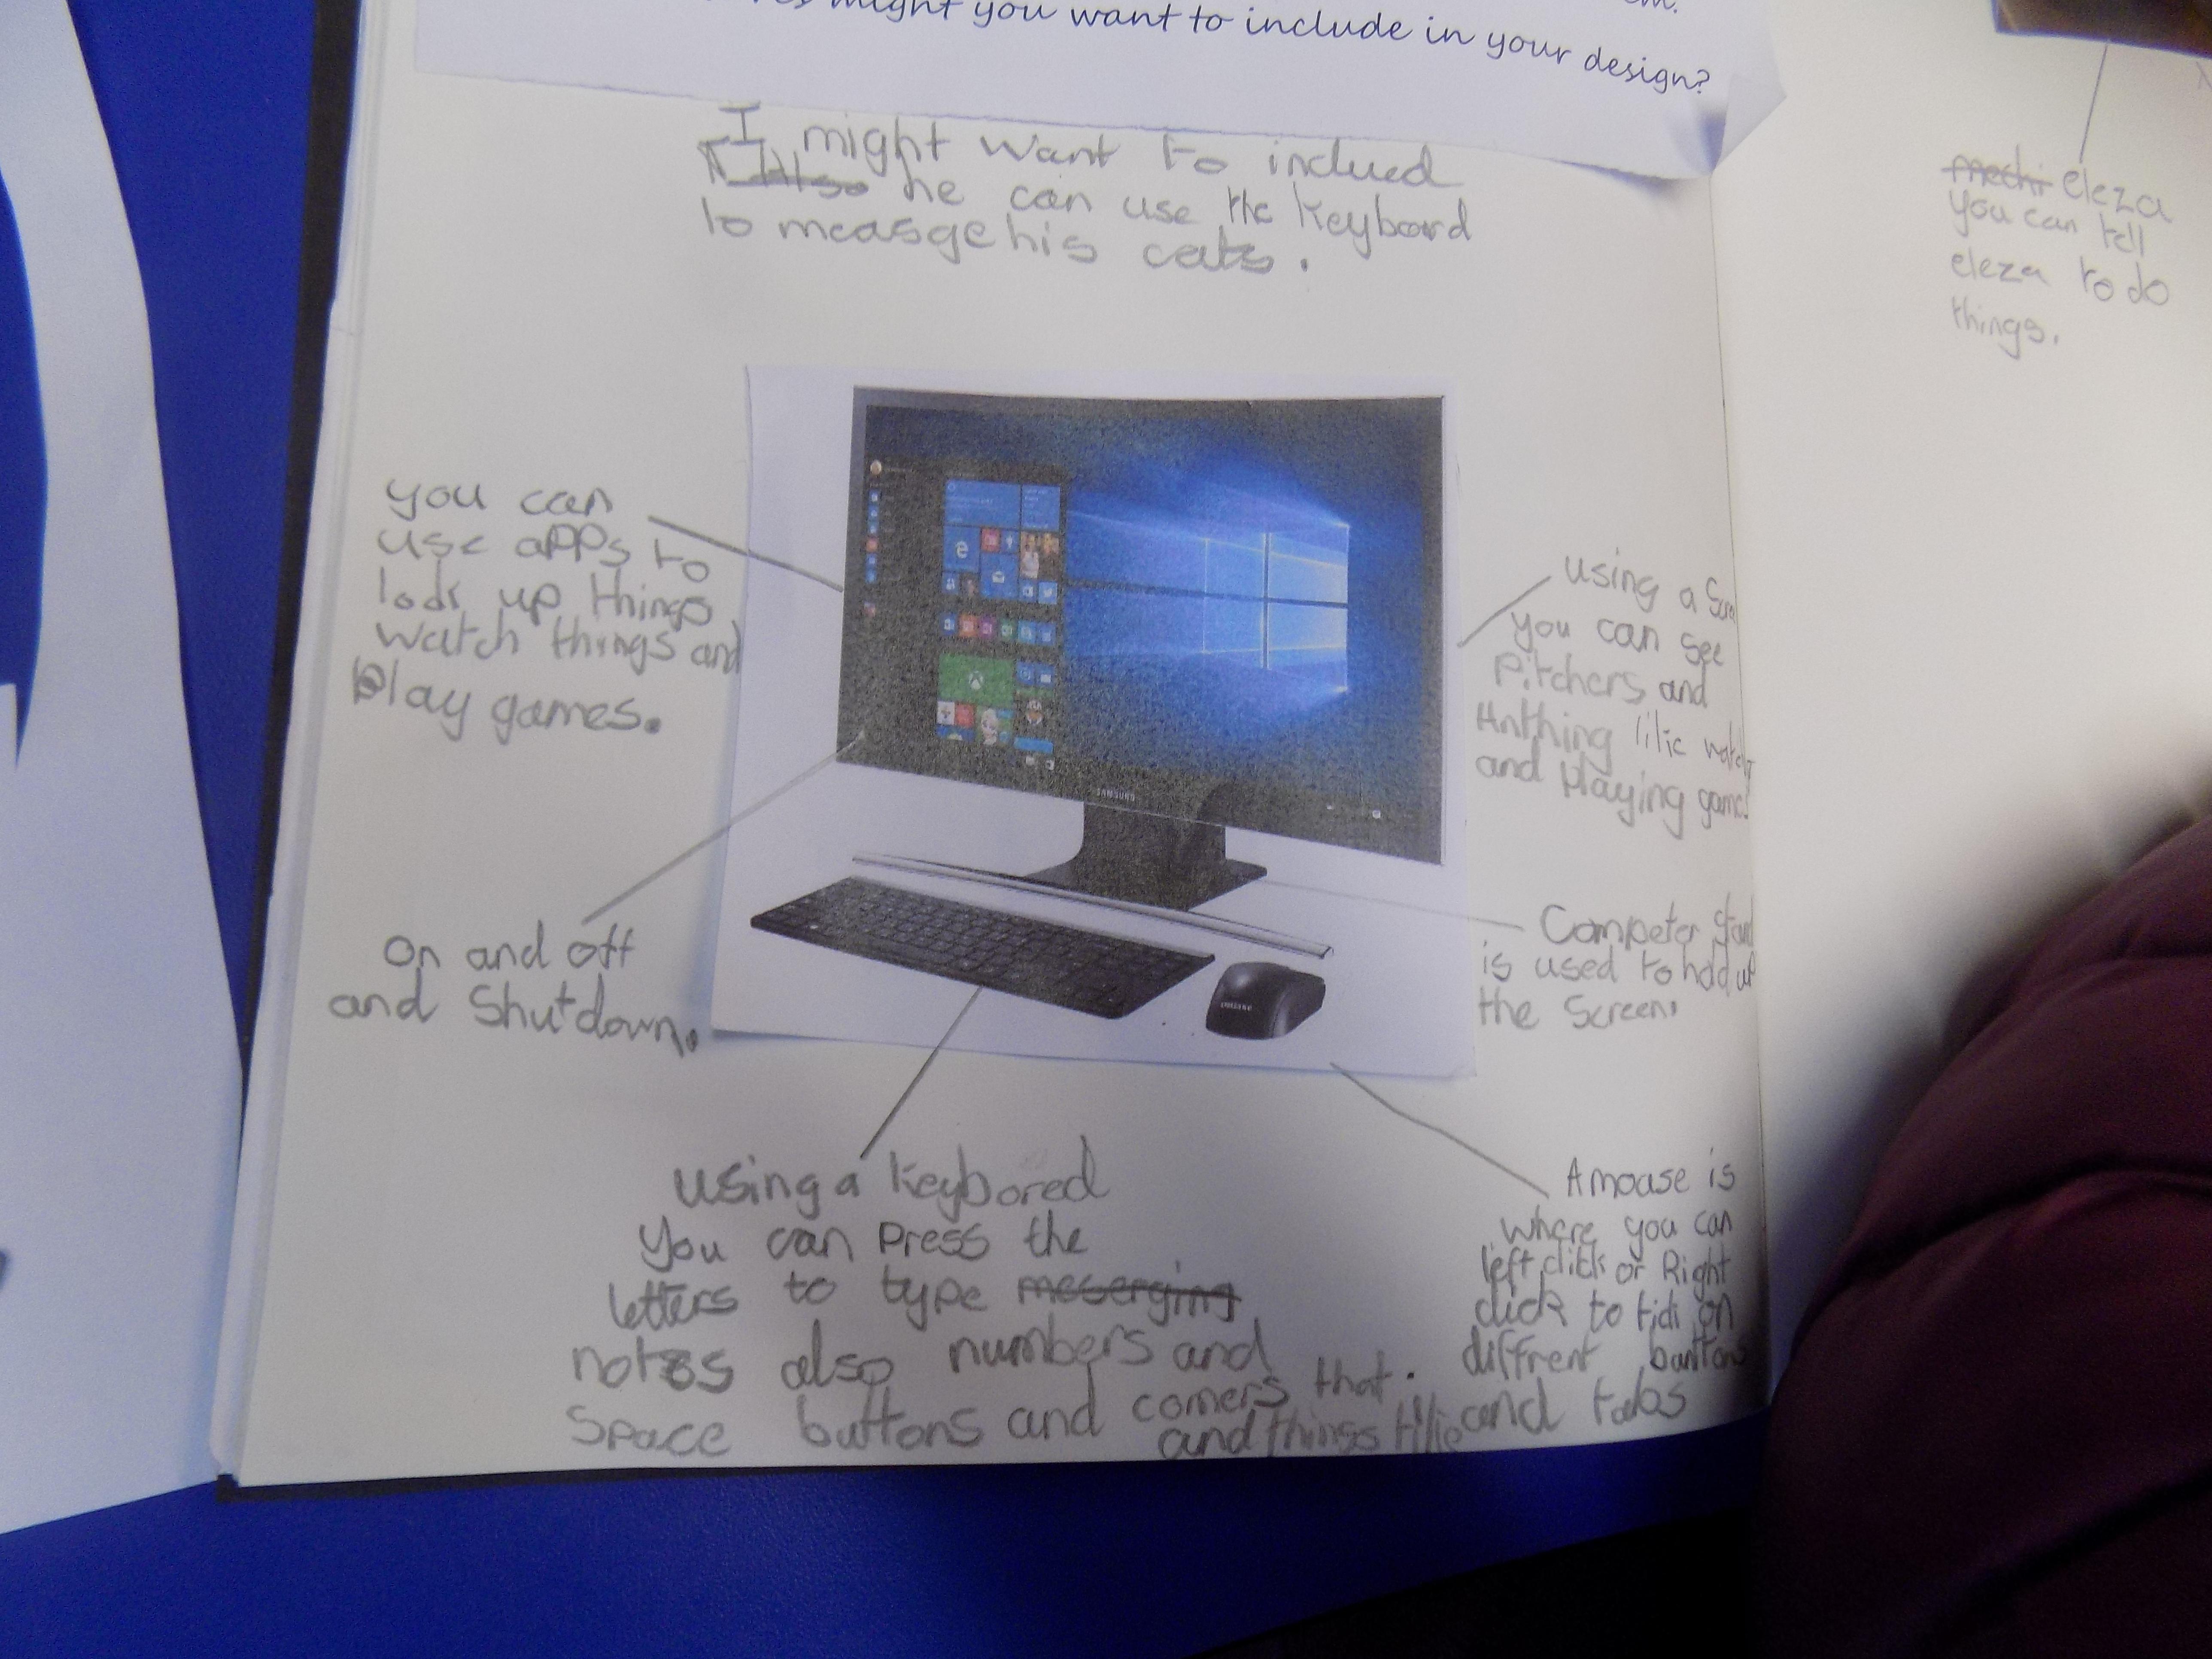 might you want to include in your design?
I might want to inclued
he can use the keyboard
to measge his cats.
eleza
you can tell
eleza to do
things.
you can
use apps to
look up things
watch things and
play games.
using a
you can see
Pitchers and
Anthing like
and playing games
SAMSUNG
on and off
and Shutdown.
Competer stand
is used to hold up
the screen.
using a keybored
you can press the
letters to type meserging
notes also numbers and
space buttons and comers that.
and things like
A mouse is
where you can
left click or Right
click to on
diffrent buttons
and tabs